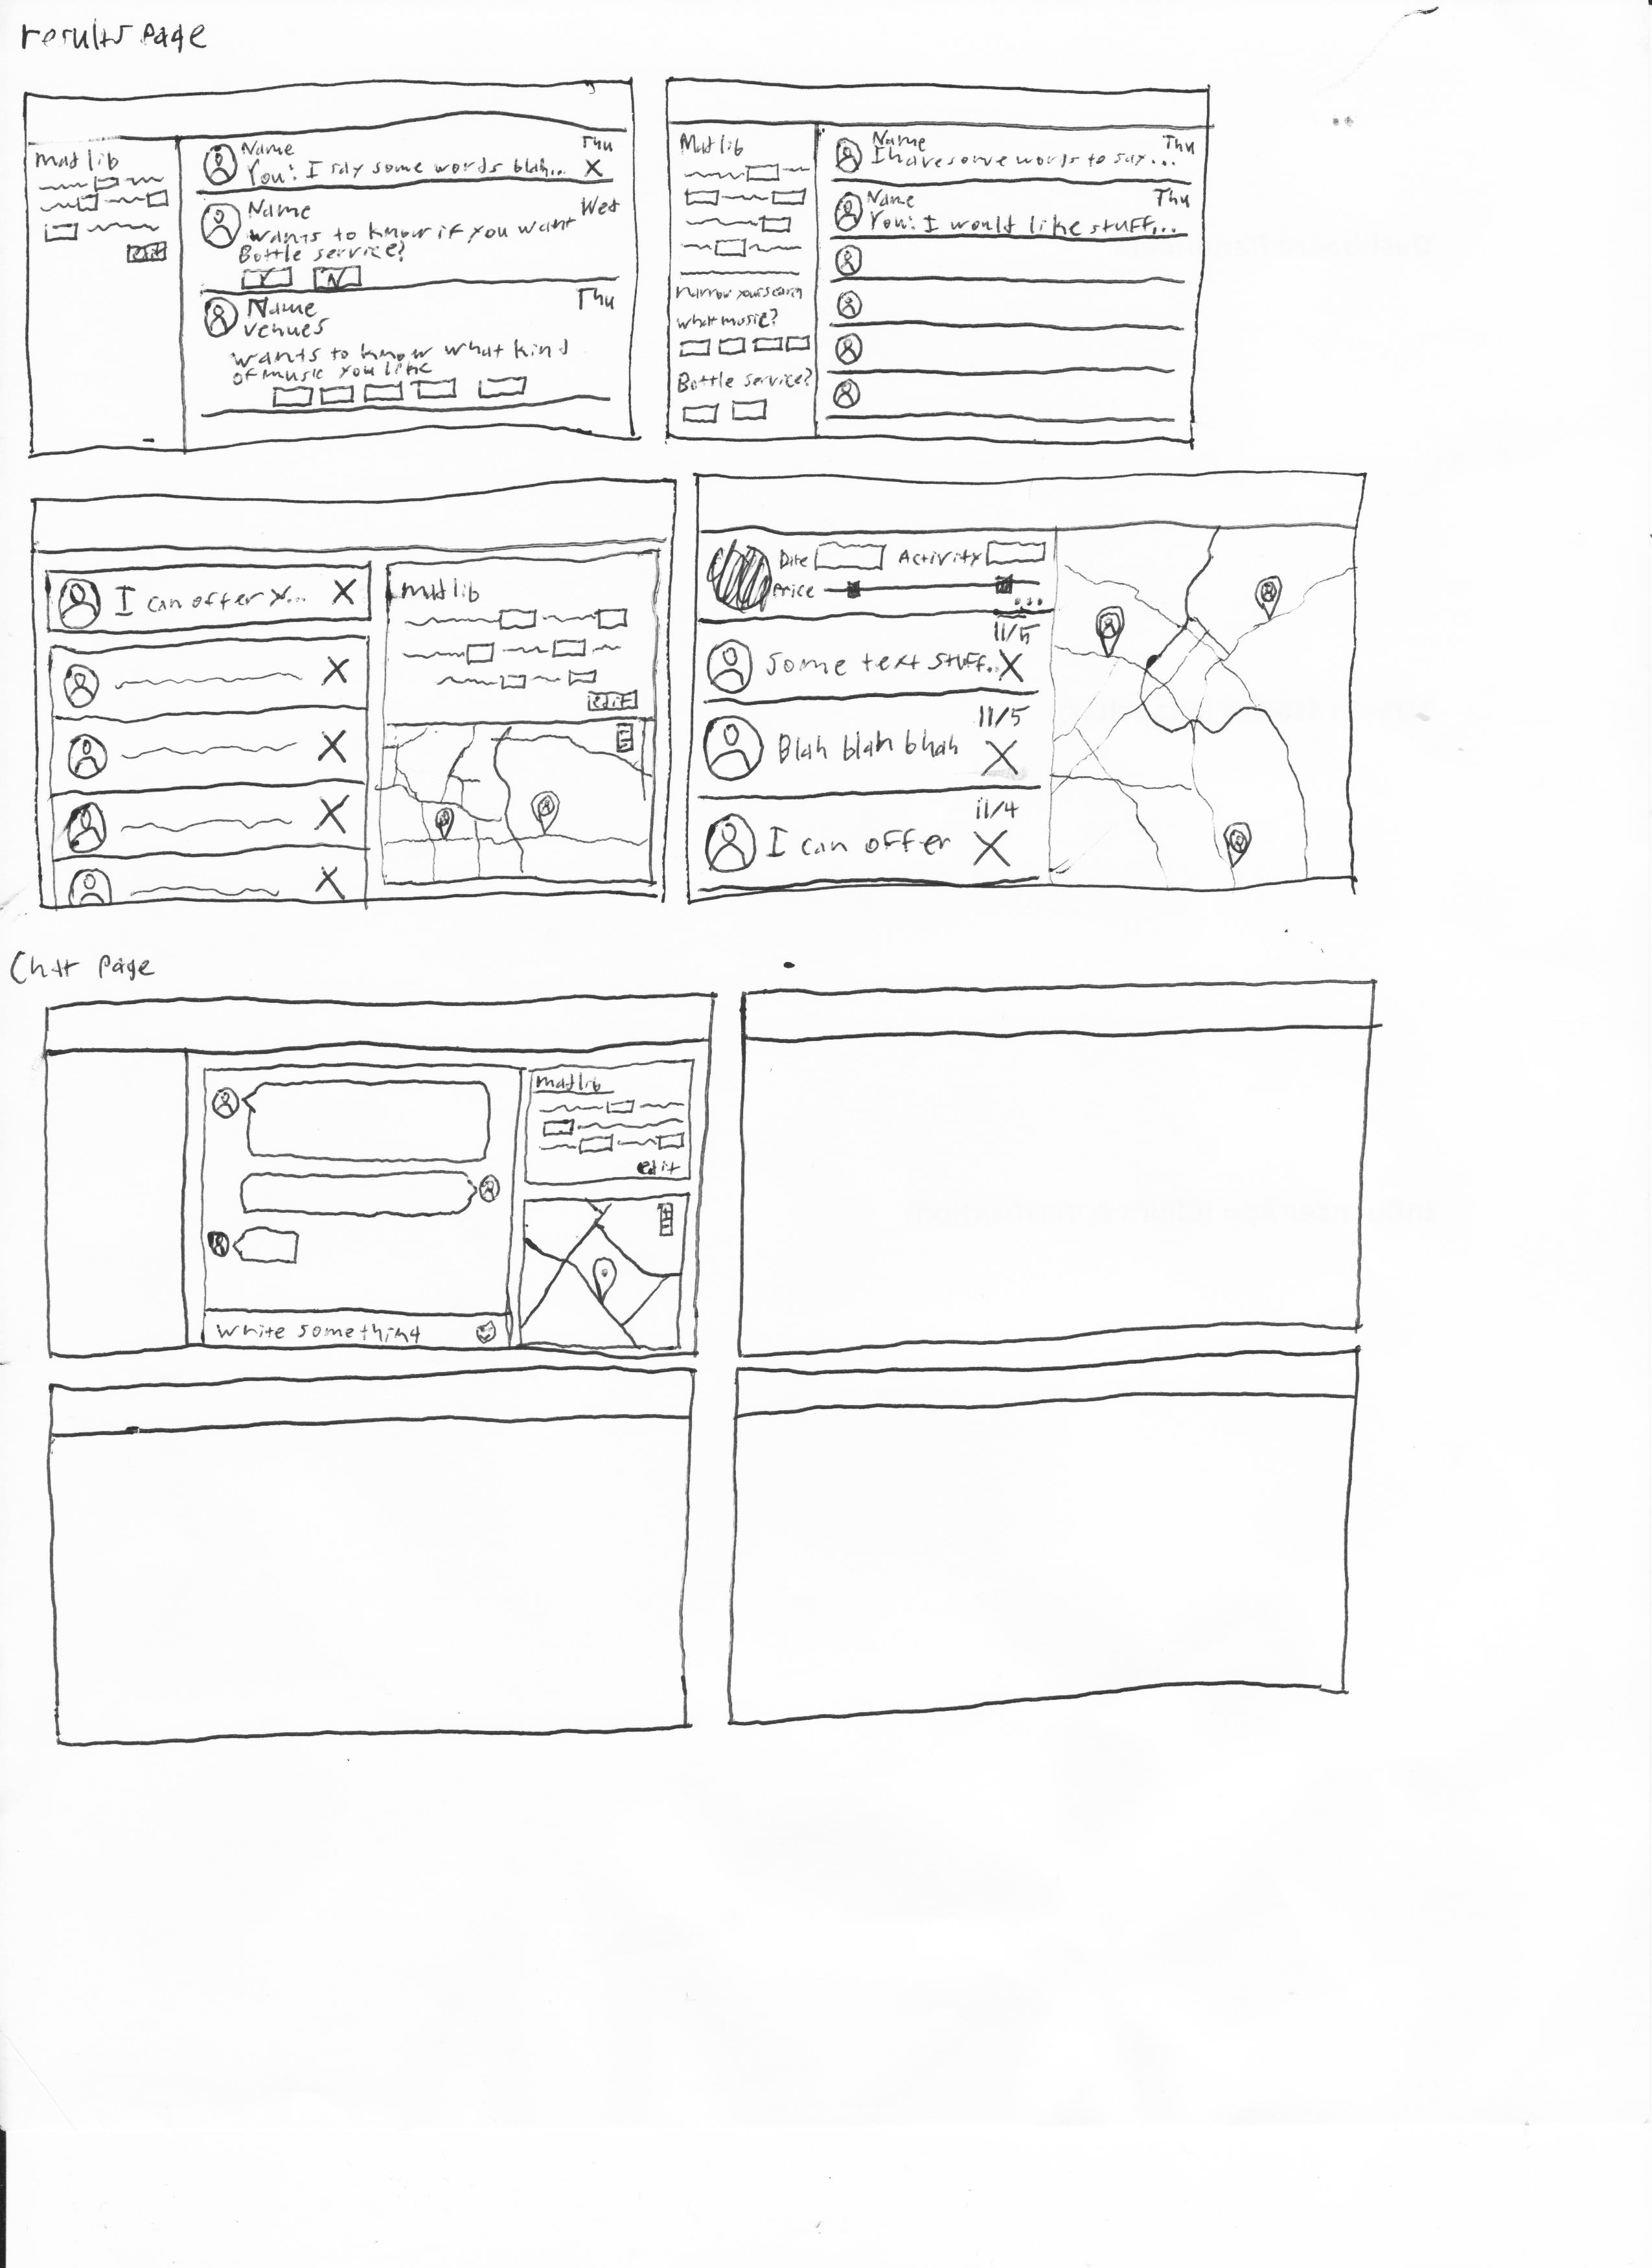 results page
Mad lib
edit
Name
Thu
You: I say some words blah... X
Name
Wed
wants to know if you want
Bottle service?
Y N
Name
Thu
venues
wants to know what kind
of music you like
Mad lib
narrow your search
what music?
Bottle service?
Name
Thu
I have some words to say...
Name
Thu
You: I would like stuff...
I can offer x... X
X
X
X
X
mad lib
edit
Date Activity
Price
...
11/5
some text stuff.. X
11/5
Blah blah bhah X
11/4
I can offer X
Chat page
mad lib
edit
write something